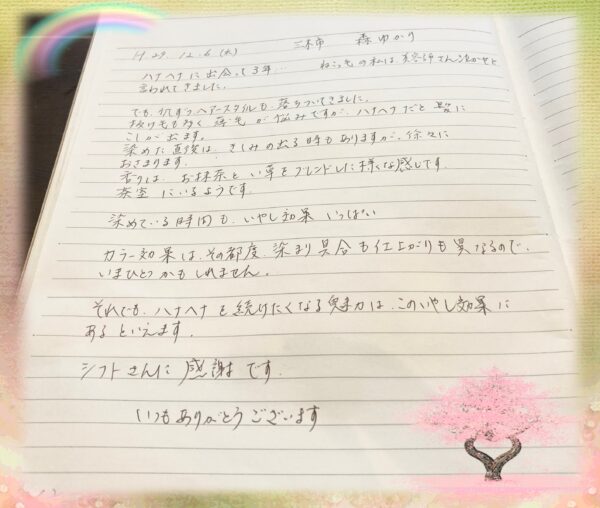 H.29.12.6(水) 三木市 森ゆかり
ハナヘナに出会って3年… ねこっ毛の私は美容師さん泣かせと
言われてきました。
でも、ヘアースタイルも、落ちついてきました。
抜け毛も多く薄毛が悩みですが、ハナヘナだと髪に
こしが出ます。
染めた直後は、きしみの出る時もありますが、徐々に
おさまります。
香りは、お抹茶とい草をブレンドした様な感じです。
茶室にいるようです。
染めている時間も、いやし効果いっぱい
カラー効果は、その都度、染まり具合も仕上がりも異なるので、
いまひとつかもしれません。
それでも、ハナヘナを続けたくなる魅力は、このいやし効果に
あるといえます。
シフトさんに感謝です。
いつもありがとうございます